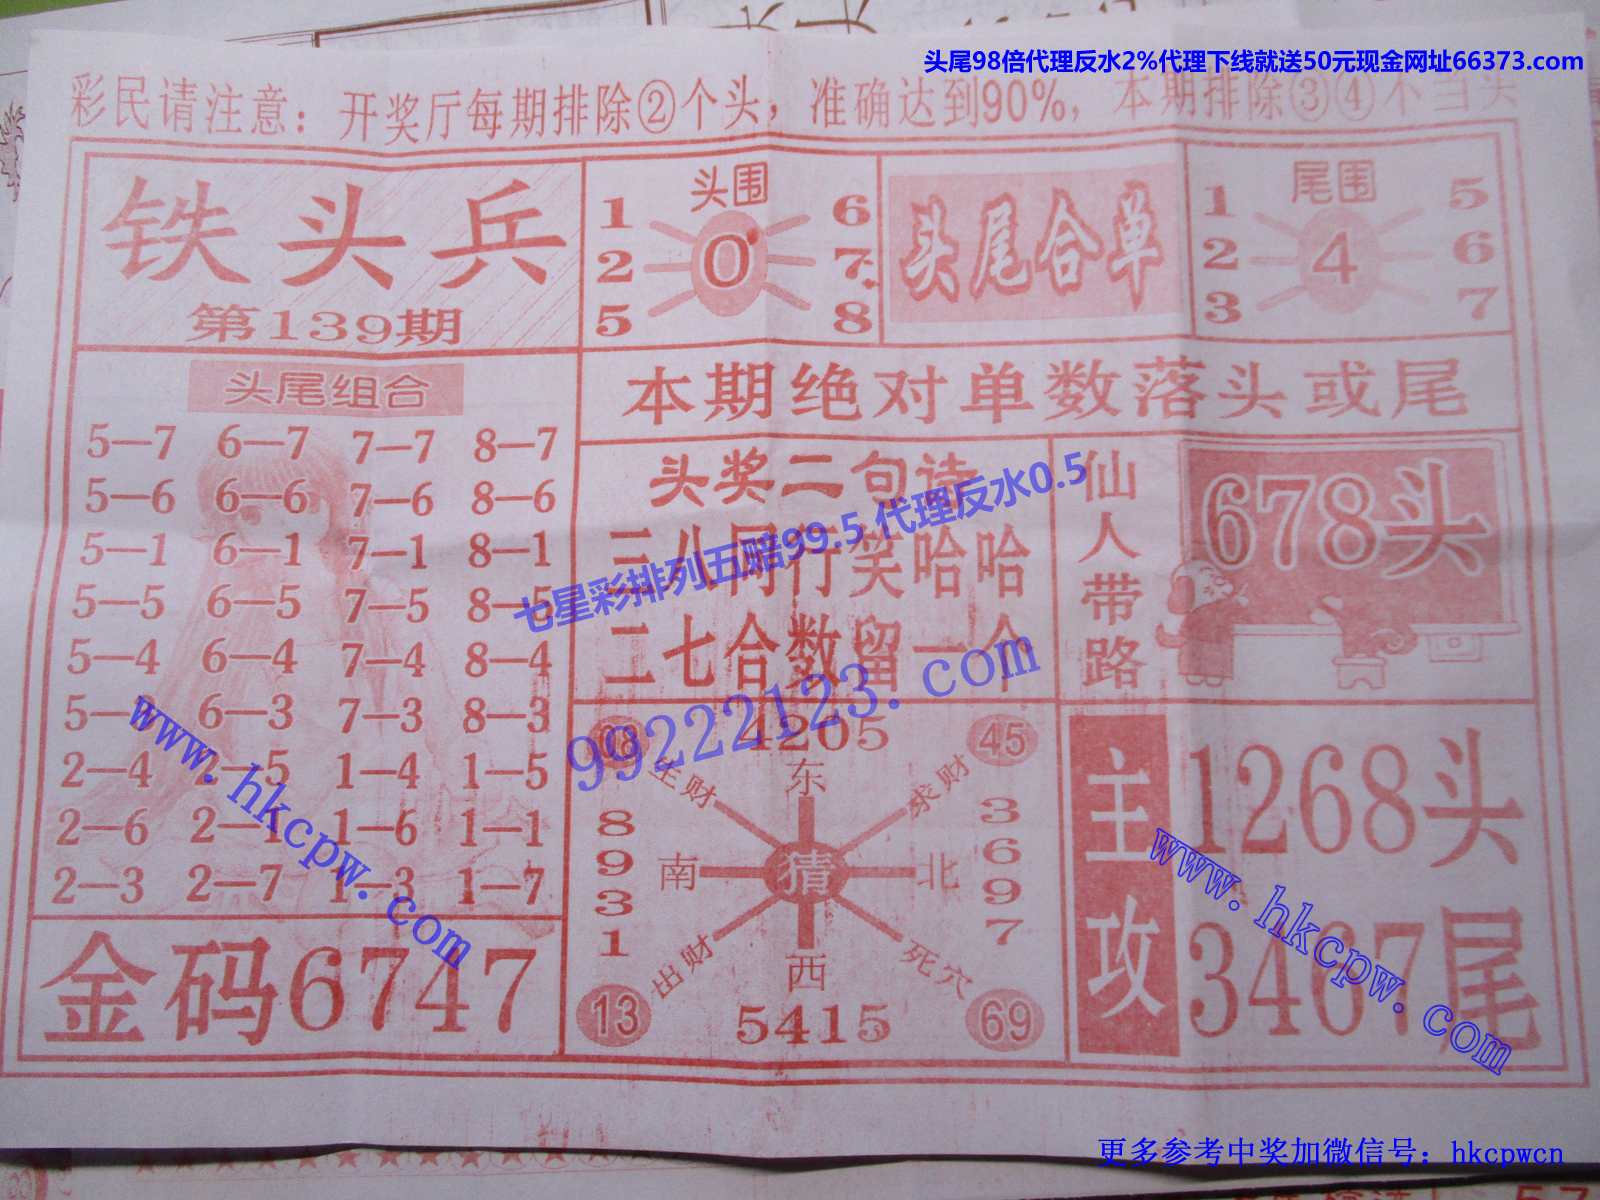 头尾98倍代理反水2%代理下线就送50元现金网址66373.com
彩民请注意：开奖厅每期排除②个头，准确达到90%，本期排除③④不当头
铁头兵
第139期
头围
1 6
2 0 7
5 8
头尾合单
尾围
1 5
2 4 6
3 7
本期绝对单数落头或尾
头尾组合
5—7 6—7 7—7 8—7
5—6 6—6 7—6 8—6
5—1 6—1 7—1 8—1
5—5 6—5 7—5 8—5
5—4 6—4 7—4 8—4
5— 6—3 7—3 8—3
2—4 2—5 1—4 1—5
2—6 2—1 1—6 1—1
2—3 2—7 1—3 1—7
金码6747
头奖二句诗
三八同行笑哈哈
二七合数留一个
七星彩排列五赔99.5 代理反水0.5
99222123.com
仙人带路
678头
4205
45
生财
东
求财
8931
南
猜
北
3697
出财
西
死穴
13
5415
69
主攻
1268头
3467尾
www.hkcpw.com
www.hkcpw.com
更多参考中奖加微信号：hkcpwcn